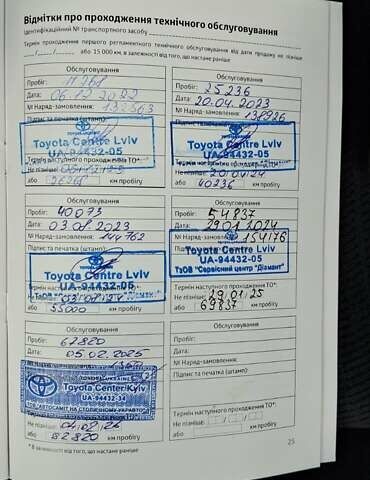 Відмітки про проходження технічного обслуговування
Ідентифікаційний № транспортного засобу
Термін проходження першого регламентного технічного обслуговування від дати продажу не пізніше
/ / або 15 000 км, в залежності від того, що настане раніше
Обслуговування
Пробіг:
Дата: 06.12.2022
№ Наряд-замовлення: 132563
Підпис та печатка (штамп):
Toyota Centre Lviv
UA-94432-05
Термін наступного проходження ТО*:
Не пізніше:
або 26268 км пробігу
Обслуговування
Пробіг: 25236
Дата: 20.04.2023
№ Наряд-замовлення: 138926
Підпис та печатка
Toyota Centre Lviv
UA-94432-05
Термін наступного проходження ТО*:
Не пізніше: 20/04/24
або 40236 км пробігу
Обслуговування
Пробіг: 40073
Дата: 03.08.2023
№ Наряд-замовлення: 144762
Підпис та печатка (штамп):
Toyota Centre Lviv
UA-94432-05
Не пізніше: 03/08/24
або 55000 км пробігу
Обслуговування
Пробіг: 54837
Дата: 29.01.2024
№ Наряд-замовлення: 154176
Підпис та печатка (штамп):
Toyota Centre Lviv
UA-94432-05
ТзОВ "Сервісний центр "Діамант"
Термін наступного проходження ТО*:
Не пізніше: 29/01/25
або 69837 км пробігу
Обслуговування
Пробіг: 67820
Дата: 05.02.2025
№ Наряд-замовлення:
TOYOTA UKRAINE
Toyota Center Kyiv
UA-94432-34
ТОВ "АВТОСАМІТ НА СТОЛИЧНОМУ-УКРАВТО"
Термін наступного проходження ТО*:
Не пізніше: 04/02/26
або 82820 км пробігу
Обслуговування
Пробіг:
Дата:
№ Наряд-замовлення:
Підпис та печатка (штамп):
Термін наступного проходження ТО*:
Не пізніше: / /
або км пробігу
* В залежності від того, що настане раніше
25